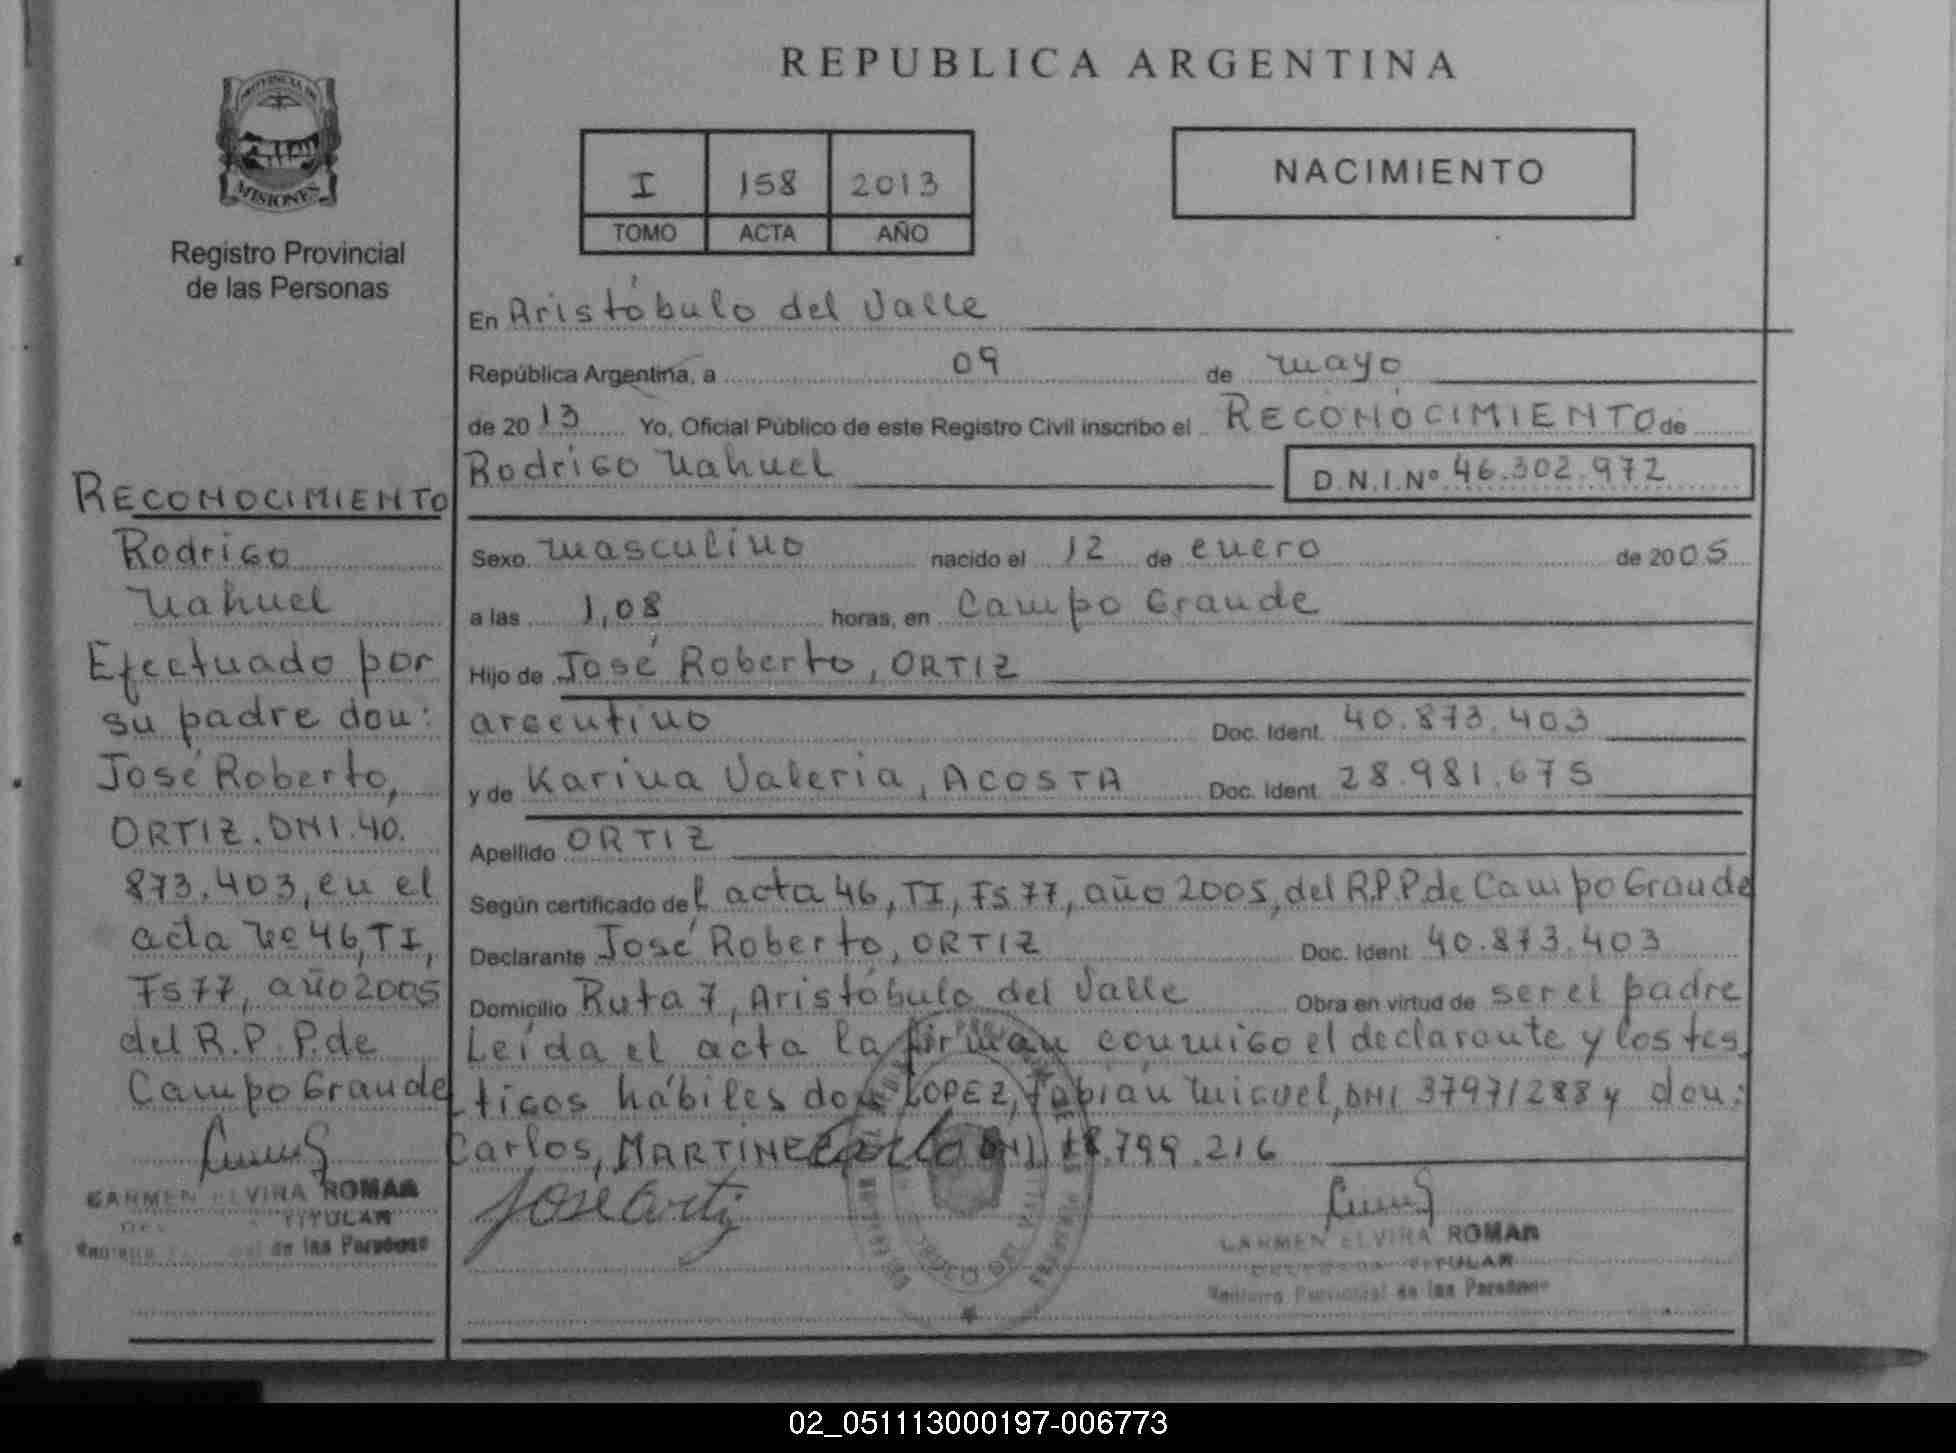 REPUBLICA ARGENTINA
PROVINCIA DE
MISIONES
Registro Provincial
de las Personas
I 158 2013
TOMO ACTA AÑO
NACIMIENTO
En Aristóbulo del Valle
República Argentina, a 09 de mayo
de 2013 Yo, Oficial Público de este Registro Civil inscribo el RECONOCIMIENTO de
Rodrigo Nahuel D.N.I.Nº 46.302.972
Sexo masculino nacido el 12 de enero de 2005
a las 1,08 horas, en Campo Grande
Hijo de José Roberto, ORTIZ
argentino Doc. Ident. 40.873.403
y de Karina Valeria, ACOSTA Doc. Ident. 28.981.675
Apellido ORTIZ
Según certificado del acta 46, TI, Fs 77, año 2005, del R.P.P. de Campo Grande
Declarante José Roberto, ORTIZ Doc. Ident. 40.873.403
Domicilio Ruta 7, Aristóbulo del Valle Obra en virtud de ser el padre
Leída el acta la firman conmigo el declarante y los tes
tigos hábiles don LOPEZ, Fabián Miguel, DNI 37971288 y don:
Carlos, MARTINEZ DNI .799.216
Jose Orti
CARMEN ELVIRA ROMAN
TITULAR
Registro Provincial de las Personas
RECONOCIMIENTO
Rodrigo
Nahuel
Efectuado por
su padre don:
José Roberto,
ORTIZ. DNI. 40.
873.403, en el
acta Nº 46, TI,
Fs 77, año 2005
del R.P.P. de
Campo Grande
CARMEN ELVIRA ROMAN
TITULAR
de las Personas
02_051113000197-006773